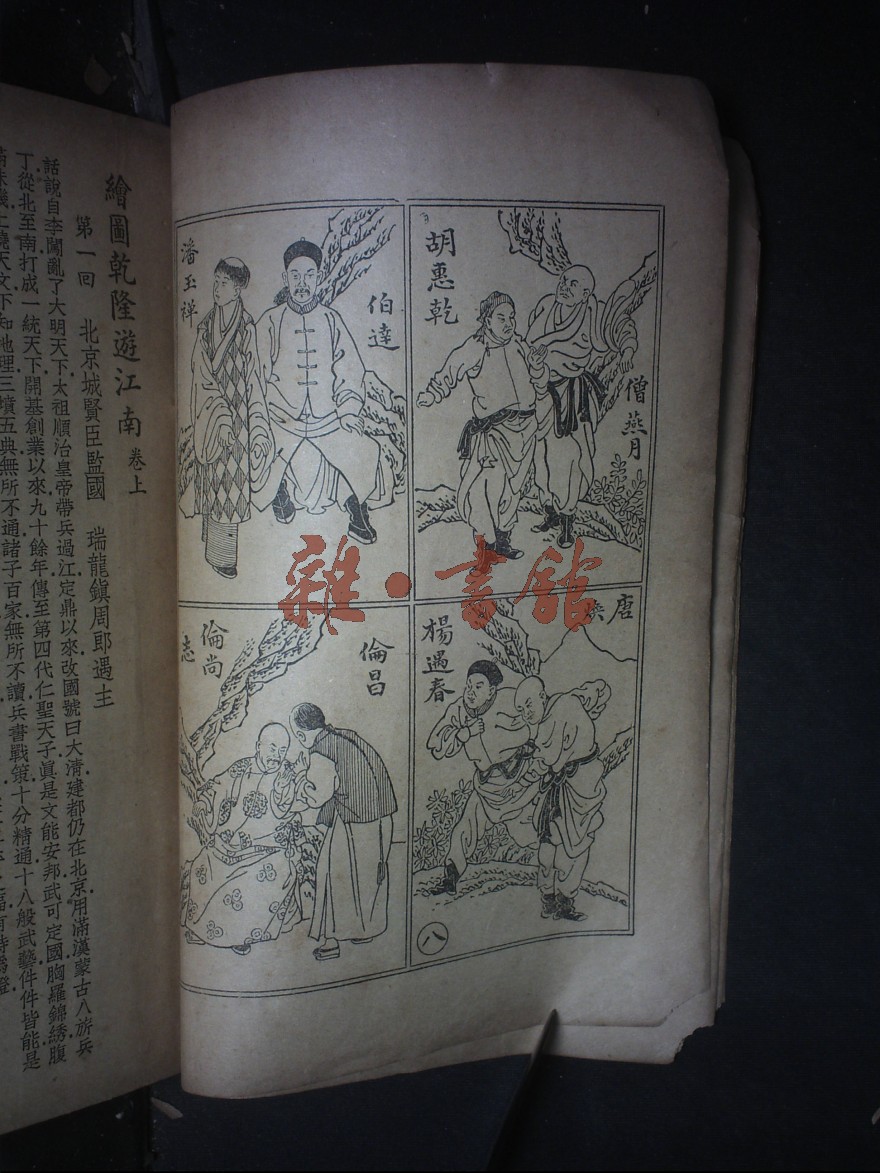 胡惠乾
僧燕月
伯達
潘玉禪
唐煥
楊遇春
倫昌
倫尚志
八
雜·書館
繪圖乾隆遊江南 卷上
第一回 北京城賢臣監國 瑞龍鎮周郎遇主
話說自李闖亂了大明天下太祖順治皇帝帶兵過江定鼎以來改國號曰大清建都仍在北京用滿漢蒙古八旂兵
丁從北至南打成一統天下開基創業以來九十餘年傳至第四代仁聖天子眞是文能安邦武可定國胸羅錦綉腹
滿珠璣上曉天文下知地理三墳五典無所不通諸子百家無所不讀兵書戰策十分精通十八般武藝件件皆能是